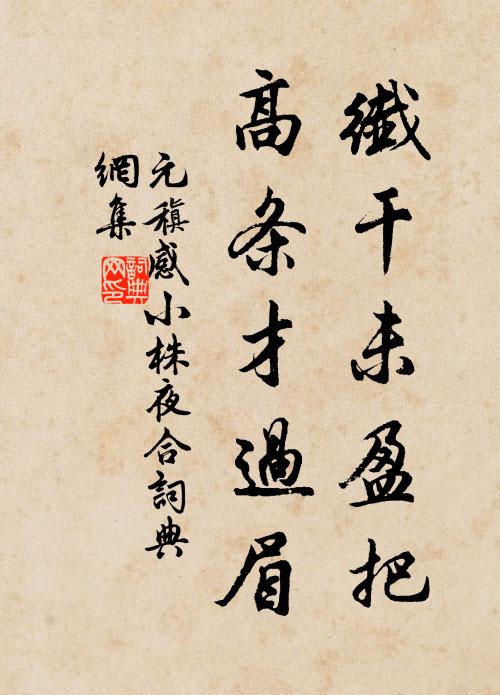 纖干未盈把
高条才過眉
元稹感小株夜合詞典
網集
詞典
网印